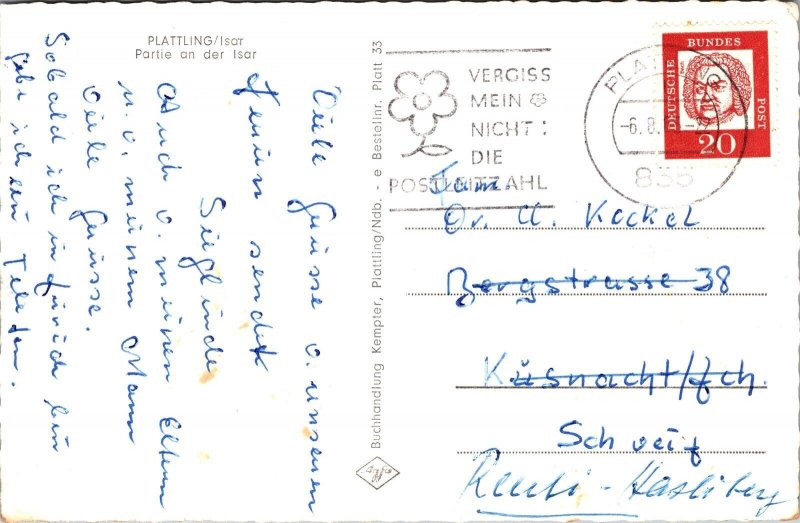 PLATTLING/Isar
Partie an der Isar
Viele Grüsse v. unseren
Ferien sendet
Sieglinde
Auch v. meinen Eltern
u. v. meinem Mann
viele Grüsse.
Sobald ich in Zürich bin
gebe ich ein Telefon.
Buchhandlung Kempter, Plattling/Ndb. - e Bestellnr. Platt 33
Agfa
VERGISS
MEIN
NICHT:
DIE
POSTLEITZAHL
-6.8.
835
DEUTSCHE
BUNDES
POST
20
Fam.
Dr. U. Kockel
Bergstrasse 38
Küsnacht/Zch.
Schweiz
Reuti-Hasliberg